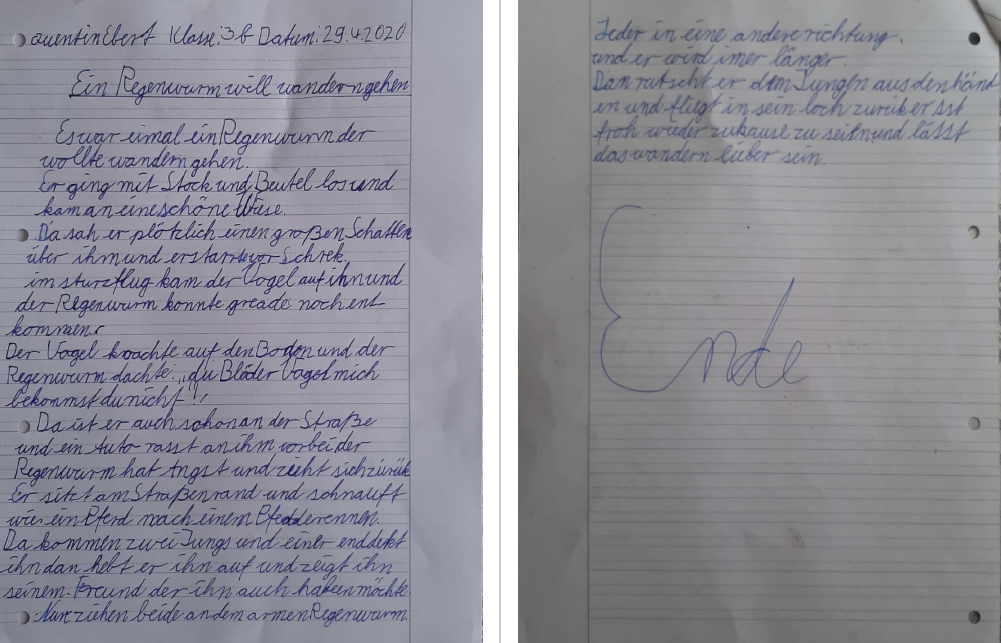 Quentin Ebert Klasse: 3b Datum: 29.4.2020
Ein Regenwurm will wandern gehen
Es war eimal ein Regenwurm der
wollte wandern gehen.
Er ging mit Stock und Beutel los und
kam an eine schöne Wiese.
Da sah er plötzlich einen großen Schatten
über ihm und erstarrte vor Schrek.
im sturzflug kam der Vogel auf ihn und
der Regenwurm konnte greade noch ent
kommen.
Der Vogel krachte auf den Boden und der
Regenwurm dachte: „du Blöder Vogel mich
bekommst du nicht!"
Da ist er auch schon an der Straße
und ein Auto rasst an ihm vorbei der
Regenwurm hat Angst und zieht sich zurük
Er sitzt am Straßenrand und schnauft
wie ein Pferd nach einem Pfedderennen.
Da kommen zwei Jungs und einer enddekt
ihn dan hebt er ihn auf und zeigt ihn
seinem Freund der ihn auch haben möchte.
Nun ziehen beide an dem armen Regenwurm.
Jeder in eine andere richtung.
und er wird imer länger.
Dan rutscht er dem Jungen aus den händ
en und fliegt in sein loch zurük er ist
froh wieder zuhause zu sein und lässt
das wandern lieber sein.
Ende